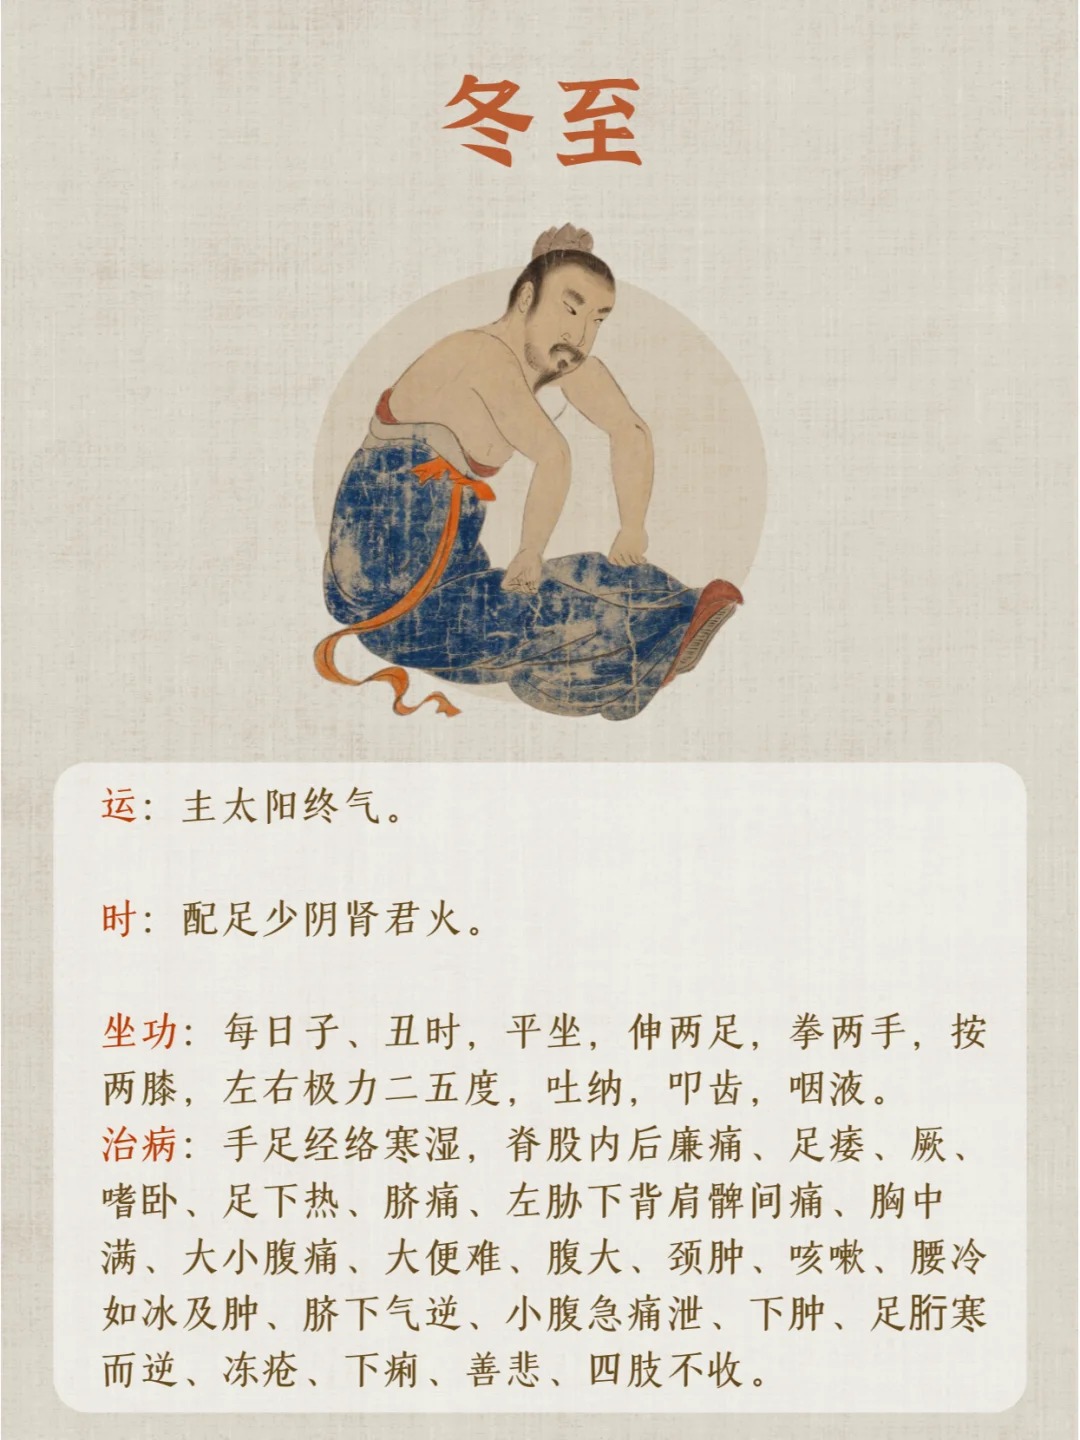 冬至
运：主太阳终气。
时：配足少阴肾君火。
坐功：每日子、丑时，平坐，伸两足，拳两手，按
两膝，左右极力二五度，吐纳，叩齿，咽液。
治病：手足经络寒湿，脊股内后廉痛、足痿、厥、
嗜卧、足下热、脐痛、左胁下背肩髀间痛、胸中
满、大小腹痛、大便难、腹大、颈肿、咳嗽、腰冷
如冰及肿、脐下气逆、小腹急痛泄、下肿、足胻寒
而逆、冻疮、下痢、善悲、四肢不收。